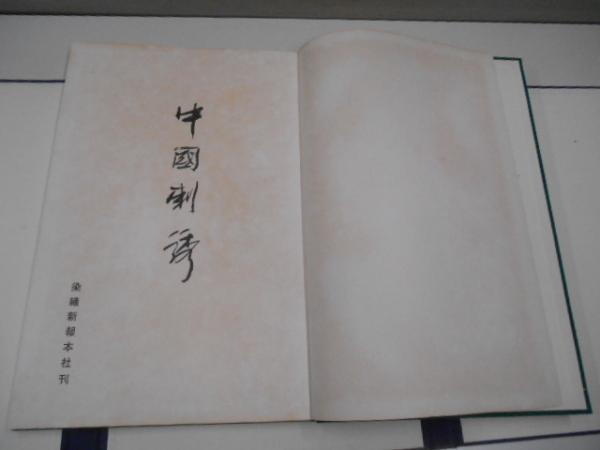 中國刺誘
染織新報本社刊